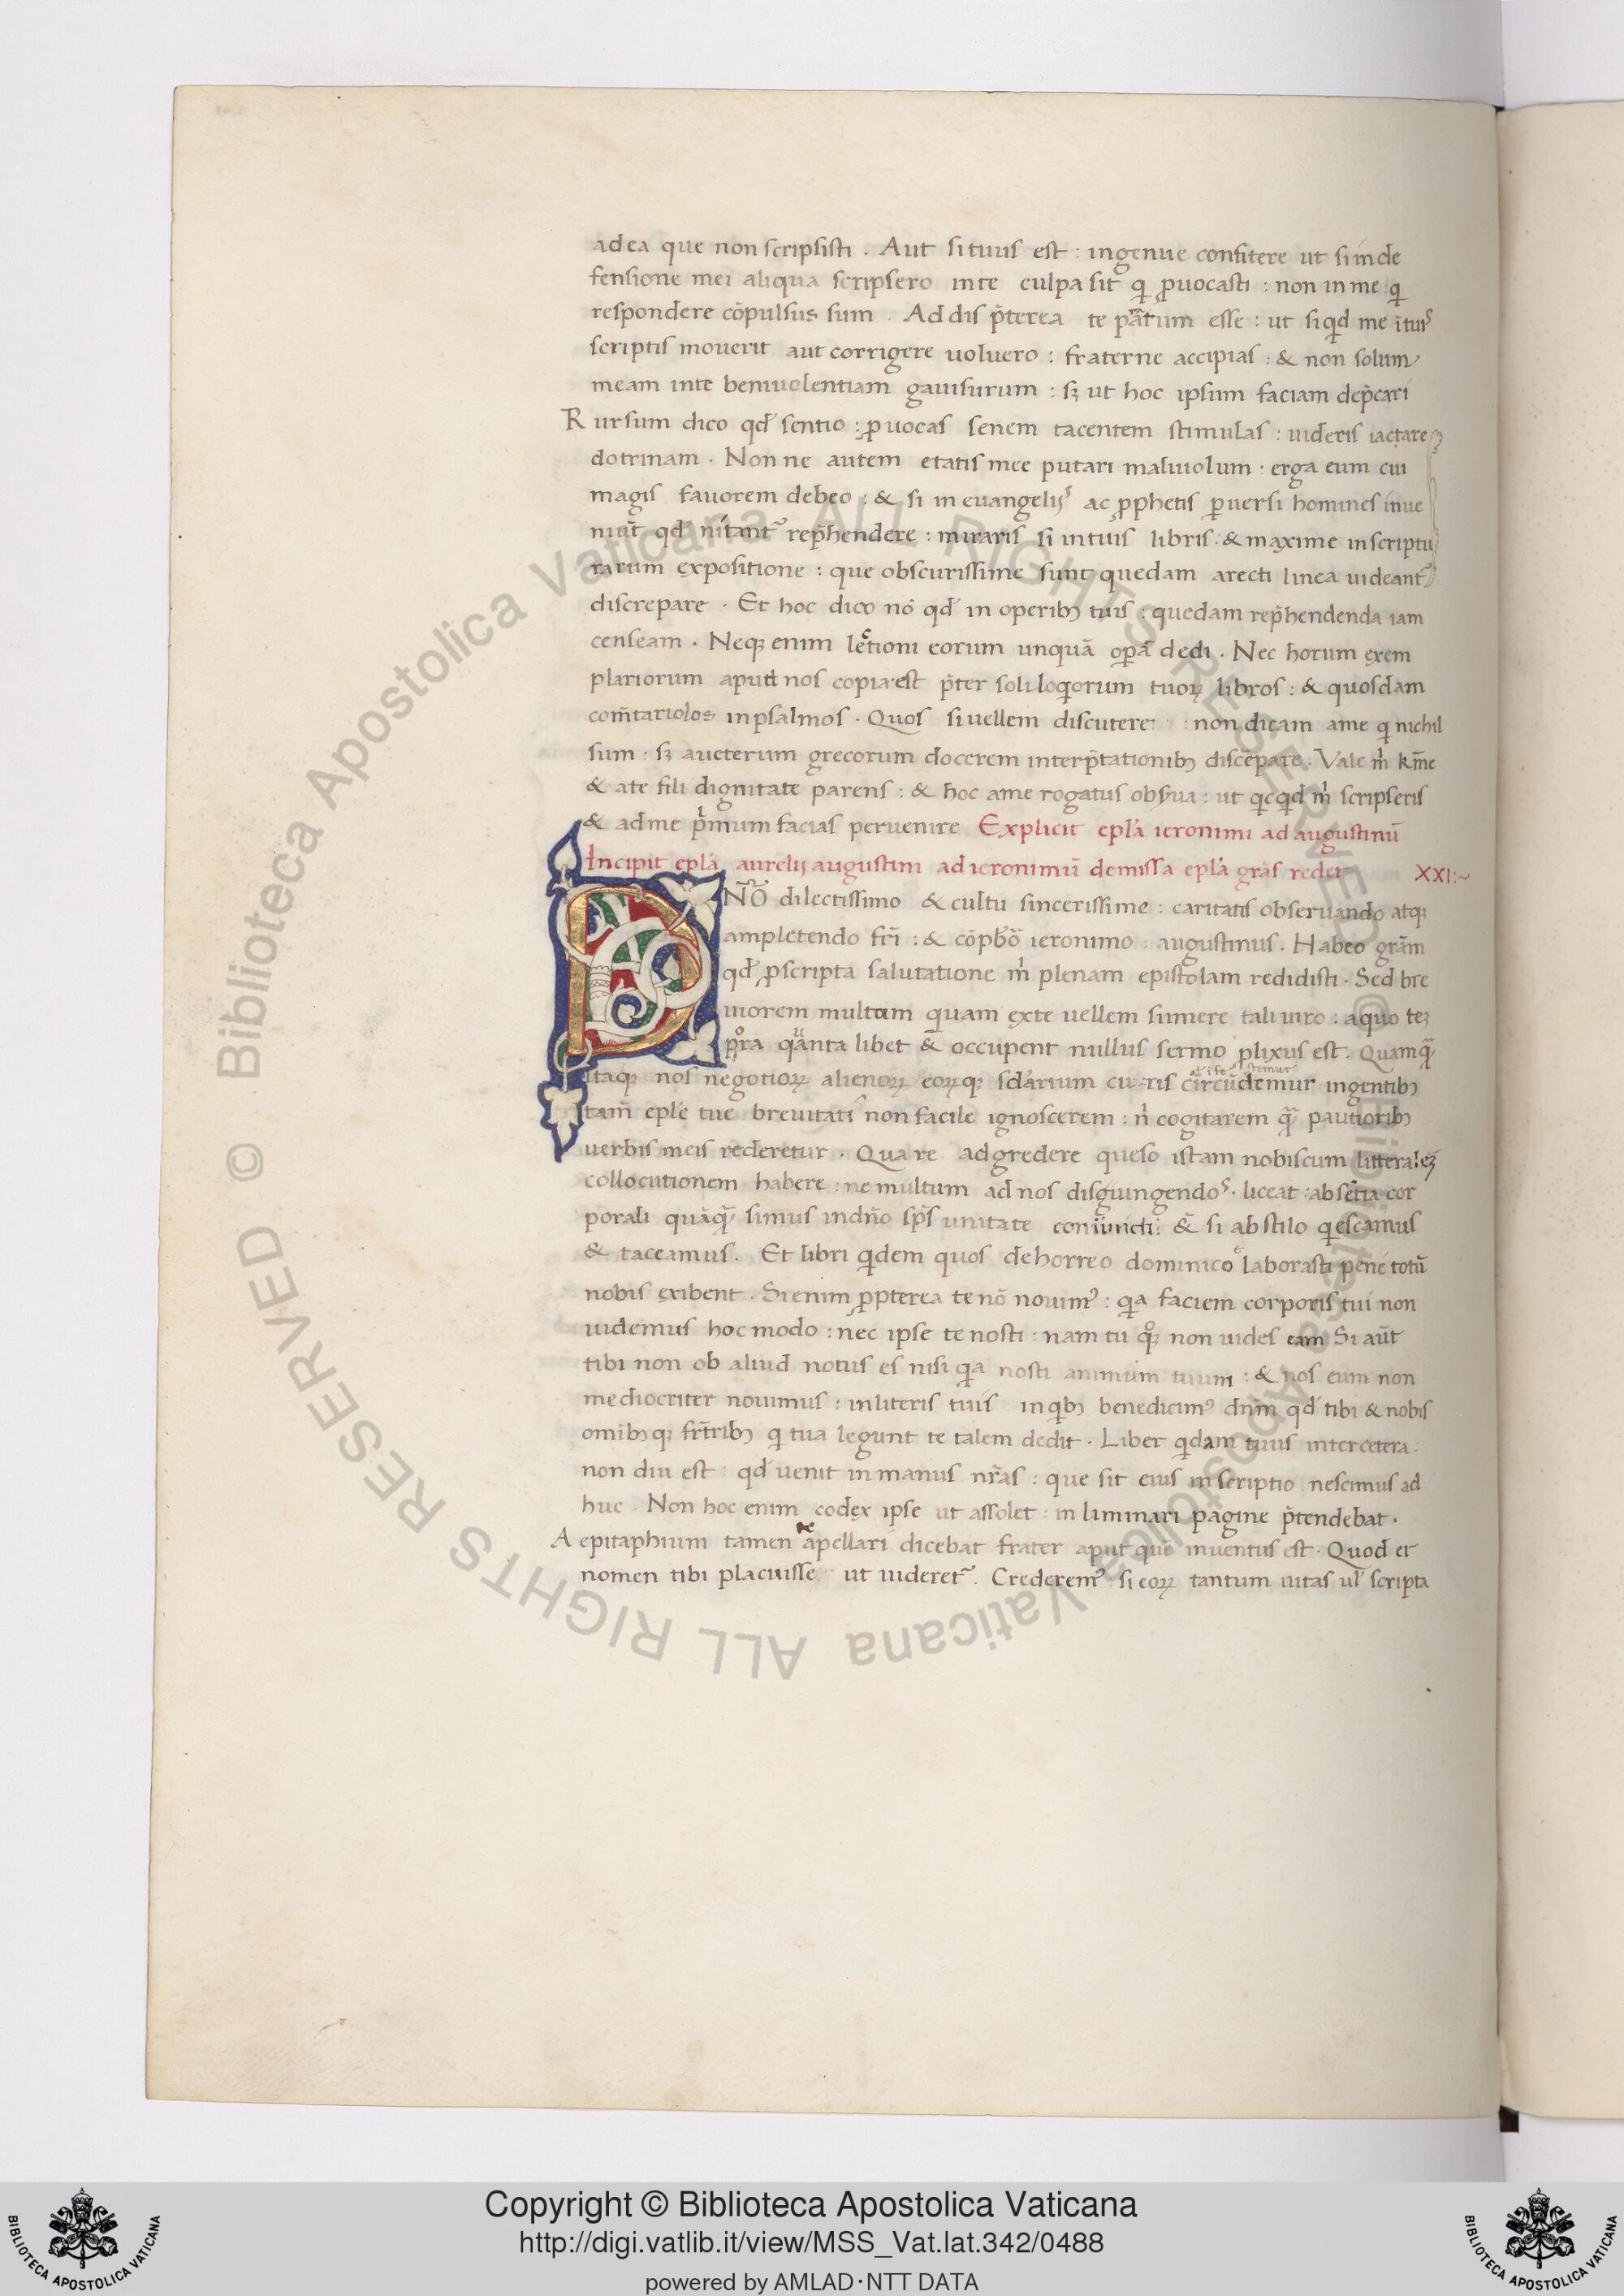 ad ea que non scripsisti . Aut si tuus est : ingenue confitere ut si in de
fensione mei aliqua scripsero in te culpa sit qͥ ꝓuocasti : non in me qͥ
respondere cōpulsus sum . Addis p̄terea te paratum esse : ut si qͥd me ī tuis
scriptis mouerit aut corrigere uoluero : fraterne accipias : & non solum
meam in te beniuolentiam gauisurum : sꝫ ut hoc ipsum faciam dep̄cari
Rursum dico qđ sentio : ꝓuocas senem tacentem stimulas : uideris iactare
dotrinam . Non ne autem etatis mee putari maliuolum : erga eum cui
magis fauorem debeo : & si in euangelijs ac ꝓphetis ꝑuersi homines inue
niūt qđ nitantᷣ rep̄hendere : miraris si in tuis libris & maxime in scriptu
rarum expositione : que obscurissime sunt quedam a recti linea uideantᷣ
discrepare . Et hoc dico nō qđ in operibꝫ tuis : quedam rep̄hendenda iam
censeam . Neqꝫ enim lectioni eorum unquā oꝑā dedi . Nec horum exem
plariorum aput nos copia est p̄ter soliloqͥorum tuoꝝ libros : & quosdam
com̄tariolos in psalmos . Quos si uellem discutere : non dicam a me qͥ nichil
sum : sꝫ a ueterum grecorum docerem interp̄tationibꝫ discēpare . Vale mͥ km̄e
& ate fili dignitate parens : & hoc a me rogatus obserua : ut qͥcqͥd mͥ scripseris
& ad me pͥmum facias peruenire Explicit epl'a ieronimi ad augustinū
Incipit epl'a aurelij augustini ad ieronimū de missa epl'a grās redet XXI:~
DNO dilectissimo & cultu sincerissime : caritatis obseruando atqꝫ
ampletendo fr̄i : & cōpbō ieronimo : augustinus . Habeo grām
qđ ꝓ scripta salutatione mͥ plenam epistolam redidisti . Sed bre
uiorem multam quam exte uellem sumere tali uiro : a quo teꝫ
pͦra qᵃnta libet & occupent nullus sermo plixus est . Quamqᵃ
Itaqꝫ nos negotioꝝ alienoꝝ eoꝝqꝫ sclarium curis circūdemur ingentibꝫ
tam̄ epl'e tue breuitati non facile ignoscerem : nͥ cogitarem qᵃ pautioribꝫ
uerbis meis rederetur . Quare adgredere queso istam nobiscum litteraleꝫ
collocutionem habere : ne multum ad nos disguingendos . liceat : absētia cor
porali quāqᵃ simus in dn̄o sp̄s unitate coniuncti : & si ab stilo qͥescamus
& taceamus . Et libri qͥdem quos de horreo dominico elaborasti pene totū
nobis exibent . Si enim ꝓpterea te nō nouimꝰ : qͥa faciem corporis tui non
uidemus hoc modo : nec ipse te nosti : nam tu qͦꝫ non uides eam Si aūt
tibi non ob aliud notus es nisi qͥa nosti animum tuum : & nos eum non
mediocriter nouimus : in literis tuis in qͥbꝫ benedicimꝰ dn̄m qđ tibi & nobis
omibꝫqꝫ fr̄tribꝫ qͥ tua legunt te talem dedit . Liber qͥdam tuus inter cetera :
non diu est : qđ uenit in manus nr̄as : que sit eius inscriptio nescimus ad
huc . Non hoc enim codex ipse ut assolet : in liminari pagine p̄tendebat .
A epitaphium tamen apellari dicebat frater aput quē inuentus est . Quod et
nomen tibi placuisse ut uideretᷣ . Crederemꝰ si eoꝝ tantum uitas ul' scripta
Copyright © Biblioteca Apostolica Vaticana
http://digi.vatlib.it/view/MSS_Vat.lat.342/0488
powered by AMLAD·NTT DATA
BIBLIOTECA APOSTOLICA VATICANA
BIBLIOTECA APOSTOLICA VATICANA
© Biblioteca Apostolica Vaticana ALL RIGHTS RESERVED © Biblioteca Apostolica Vaticana ALL RIGHTS RESERVED